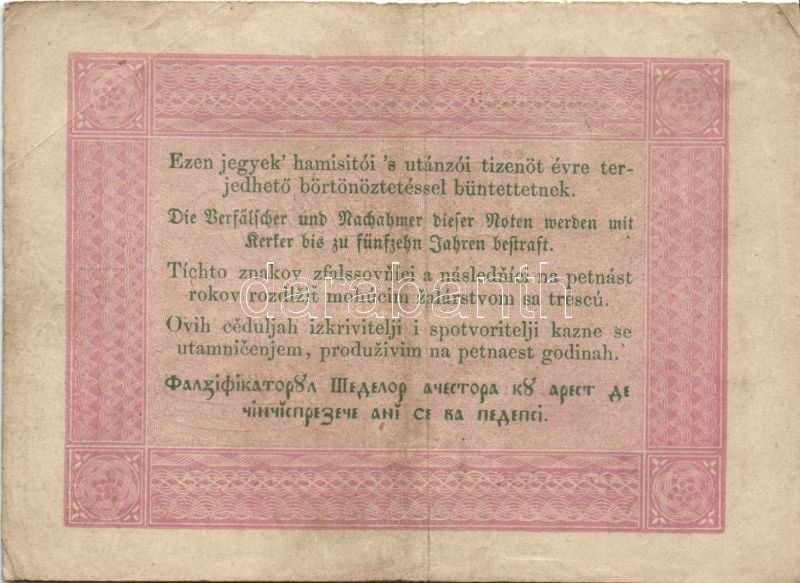 Ezen jegyek' hamisitói 's utánzói tizenöt évre ter-
jedhető börtönöztetéssel büntettetnek.
Die Verfälscher und Nachahmer dieser Noten werden mit
Kerker bis zu fünfzehn Jahren bestraft.
Tíchto znakov zfalssovňíci a následňíci na petnást
rokov rozdlžit mohúcim žalárstvom sa trescú.
darabanth
Ovih cĕduljah izkrivitelji i spotvoritelji kazne se
utamničenjem, produživim na petnaest godinah.
Фалꙁіфікаторꙋл Шеделор ачестора кꙋ арест де
чінчіспреꙁече ані се ва педепсі.